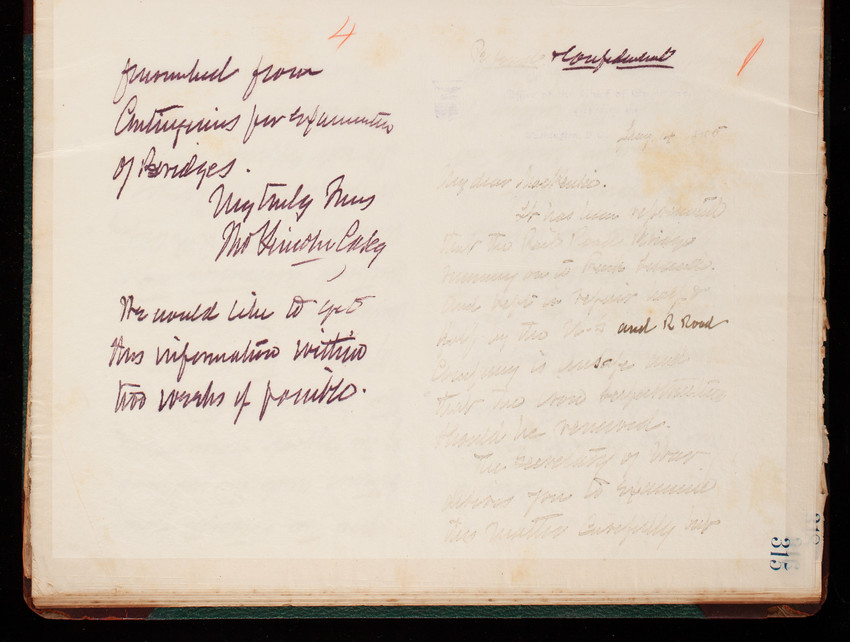 4
furnished from
Contingencies for Examination
of Bridges.
Very truly Yours
Thos Lincoln Casey
We would like to get
this information within
two weeks if possible.
& Confidential
1
My dear Mackenzie.
It has been represented
that the Rock Island Bridge
and kept in repair
by the U.S. and R Road
Company is unsafe and
that the
should be renewed.
The Secretary of War
desires you to examine
this matter carefully
315